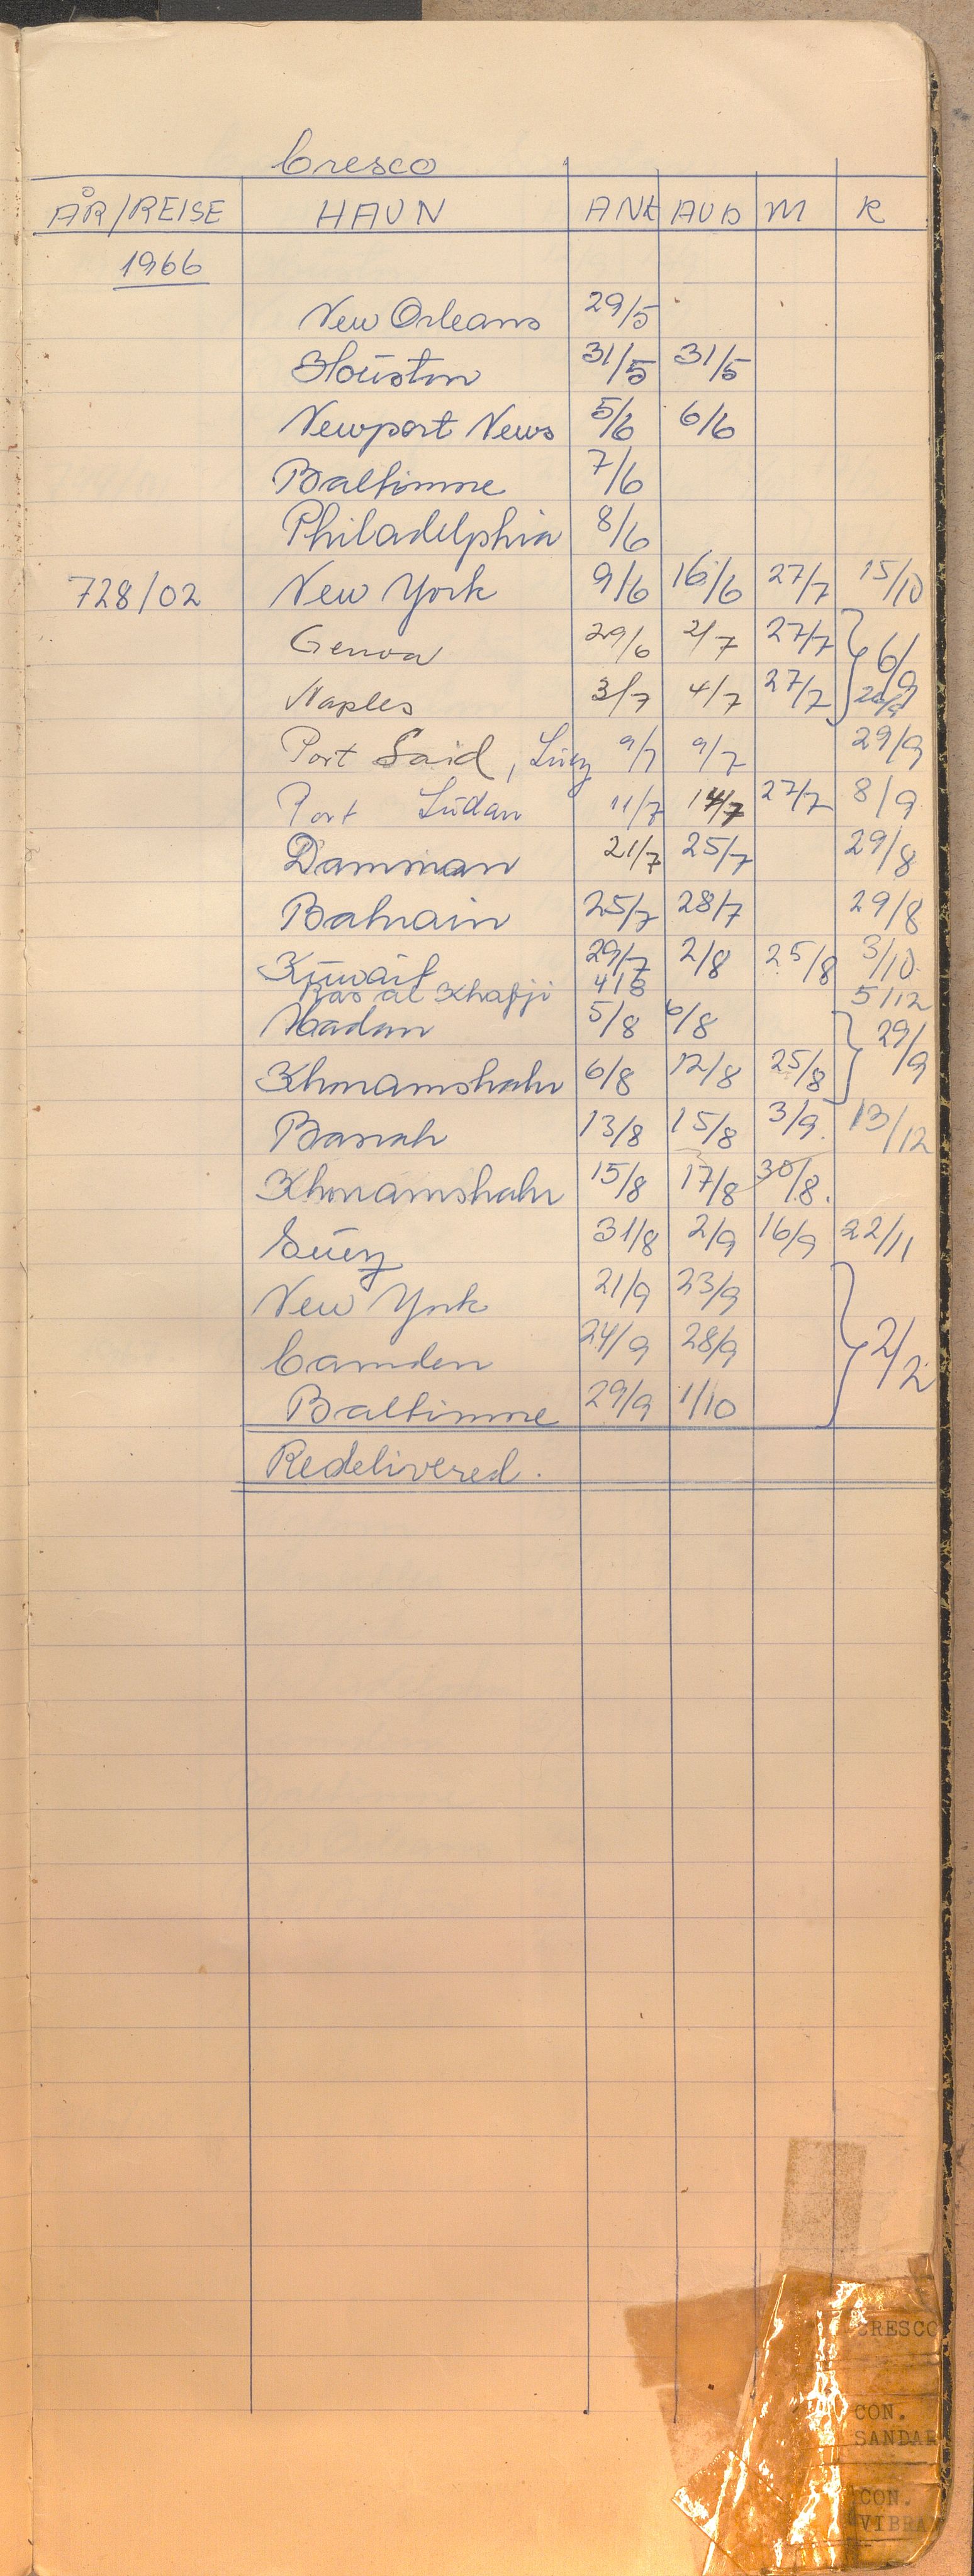 Cresco
ÅR/REISE HAVN ANK AVG M R
1966
New Orleans 29/5
Houston 31/5 31/5
Newport News 5/6 6/6
Baltimore 7/6
Philadelphia 8/6
728/02 New York 9/6 16/6 27/7 15/10
Genoa 29/6 2/7 27/7 6/9
Naples 3/7 4/7 27/7
Port Said, Suez 9/7 9/7 29/9
Port Sudan 11/7 14/7 27/7 8/9
Damman 21/7 25/7 29/8
Bahrain 25/7 28/7 29/8
Kuwait 29/7 2/8 25/8 3/10
Ras al Khafji 4/8 5/12
Abadan 5/8 6/8 29/9
Khorramshahr 6/8 12/8 25/8
Basrah 13/8 15/8 3/9. 13/12
Khorramshahr 15/8 17/8 30/8.
Suez 31/8 2/9 16/9 22/11
New York 21/9 23/9
Camden 24/9 28/9 2/2
Baltimore 29/9 1/10
Redelivered.
CRESCO
CON.
SANDAR
CON.
VIBRA